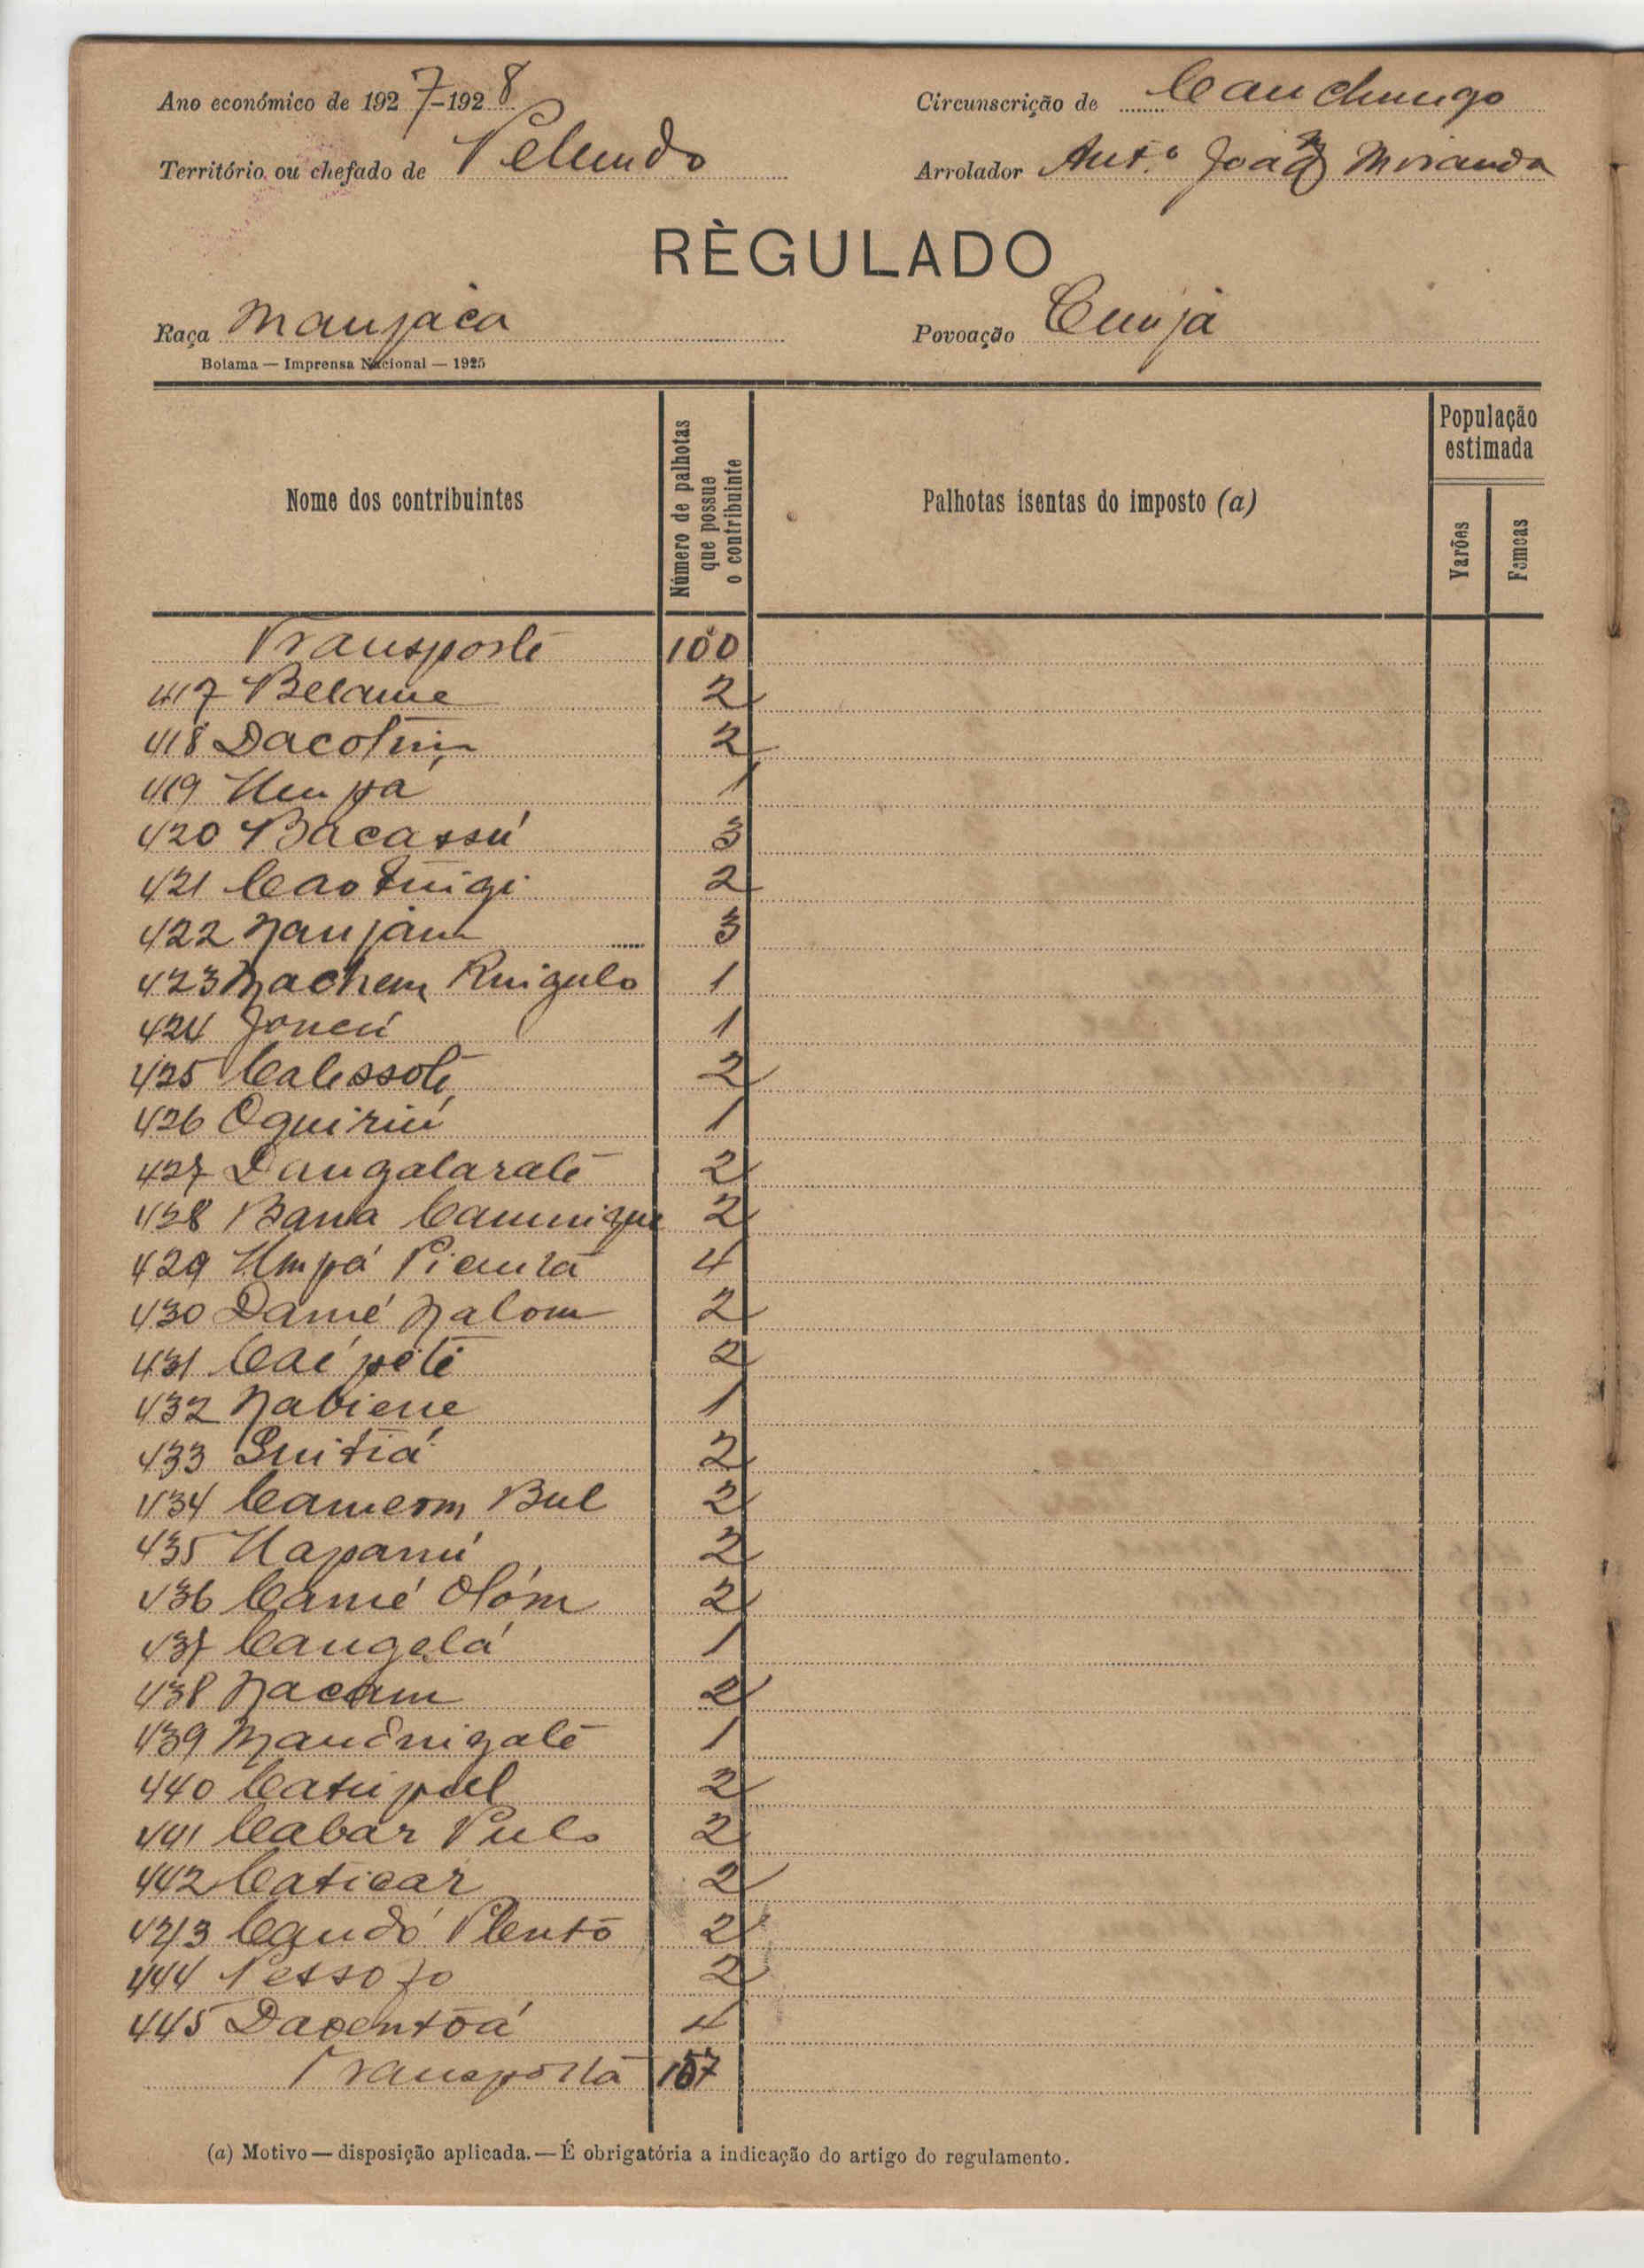 Ano económico de 1927-1928
Circunscrição de Canchungo
Território ou chefado de Pelundo
Arrolador Antº João Miranda
RÈGULADO
Raça Manjaca
Povoação Cunja
Bolama — Imprensa Nacional — 1925
Nome dos contribuintes
Número de palhotas que possue o contribuinte
Palhotas isentas do imposto (a)
População estimada
Varões
Femeas
Transporte 100
417 Belame 2
418 Dacotim 2
419 Umpá 1
420 Bacassú 3
421 2
422 Nanjam 3
423 Nachem 1
424 Joncú 1
425 Calessoté 2
426 Oquiriú 1
427 Dangalaralé 2
428 Bana 2
429 Umpá 4
430 Damé Nalom 2
431 Caipété 2
432 Nabiene 1
433 2
434 Camerom Bul 2
435 2
436 Camé Olóm 2
437 Cangelá 1
438 Nacam 2
439 1
440 Catupul 2
441 Cabar Pulo 2
442 Caticar 2
443 Candó 2
444 2
445 4
Transporta 157
(a) Motivo — disposição aplicada. — É obrigatória a indicação do artigo do regulamento.